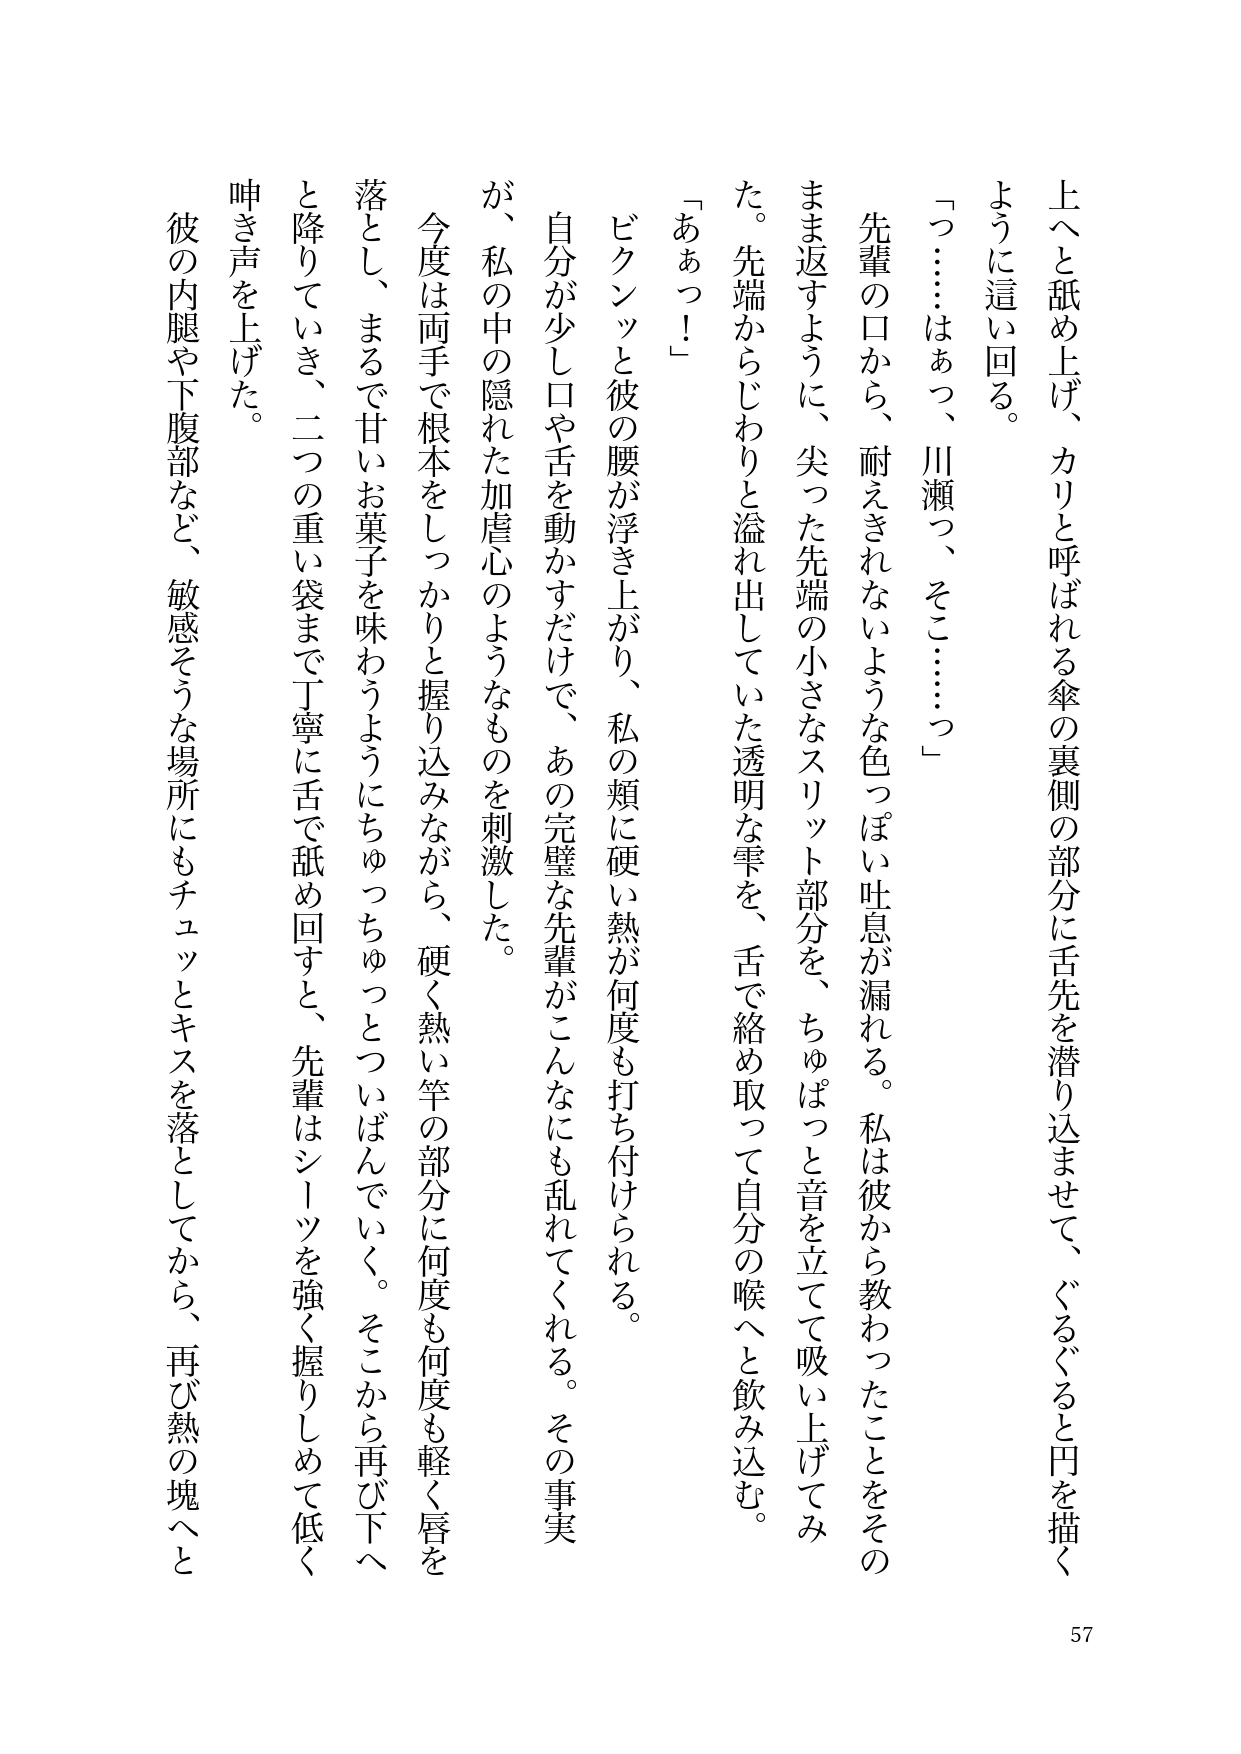 上へと舐め上げ、カリと呼ばれる傘の裏側の部分に舌先を潜り込ませて、ぐるぐると円を描く
ように這い回る。
「つ……はぁっ、川瀬っ、そこ……っ」
先輩の口から、耐えきれないような色っぽい吐息が漏れる。私は彼から教わったことをその
まま返すように、尖った先端の小さなスリット部分を、ちゅぱっと音を立てて吸い上げてみ
た。先端からじわりと溢れ出していた透明な雫を、舌で絡め取って自分の喉へと飲み込む。
「あぁっ！」
ビクンッと彼の腰が浮き上がり、私の頬に硬い熱が何度も打ち付けられる。
自分が少し口や舌を動かすだけで、あの完璧な先輩がこんなにも乱れてくれる。その事実
が、私の中の隠れた加虐心のようなものを刺激した。
今度は両手で根本をしっかりと握り込みながら、硬く熱い竿の部分に何度も何度も軽く唇を
落とし、まるで甘いお菓子を味わうようにちゅっちゅっとついばんでいく。そこから再び下へ
と降りていき、二つの重い袋まで丁寧に舌で舐め回すと、先輩はシーツを強く握りしめて低く
呻き声を上げた。
彼の内腿や下腹部など、敏感そうな場所にもチュッとキスを落としてから、再び熱の塊へと
57